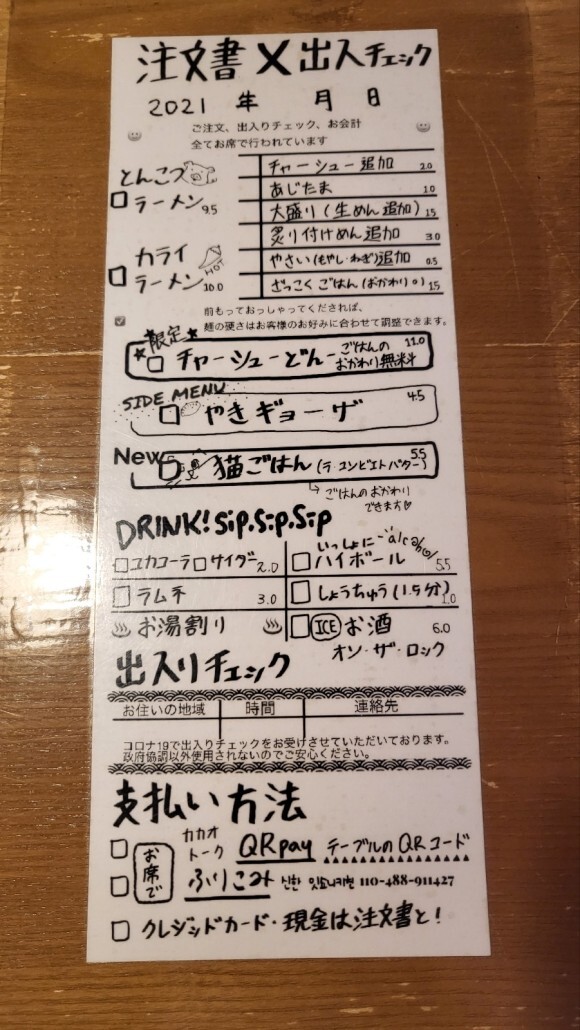 注文書 X 出入チェック
2021 年 月 日
ご注文、出入りチェック、お会計
全てお席で行われています
とんこつ
ラーメン 9.5
カライ
ラーメン 10.0
HOT
チャーシュー追加 2.0
あじたま 1.0
大盛り(生めん追加) 1.5
炙り付けめん追加 3.0
やさい(もやし・ねぎ)追加 0.5
ざっこくごはん(おかわり○) 1.5
前もっておっしゃってくだされば、
麺の硬さはお客様のお好みに合わせて調整できます。
★限定★
チャーシューどんーごはんのおかわり無料 11.0
SIDE MENU
やきギョーザ 4.5
New
猫ごはん(ラ・コンビエトバター) 5.5
→ごはんのおかわり
できます♡
DRINK! Sip.Sip.Sip
コカコーラ サイダー 2.0
ラムネ 3.0
♨お湯割り♨
いっしょに alcohol
ハイボール 5.5
しょうちゅう(1.5分) 1.0
ICE お酒 6.0
オン・ザ・ロック
出入りチェック
お住いの地域 時間 連絡先
コロナ19で出入りチェックをお受けさせていただいております。
政府協調以外使用されないのでご安心ください。
支払い方法
お席で
カカオ
トーク QRpay テーブルのQRコード
ふりこみ 신한 110-488-911427
クレジッドカード・現金は注文書と!